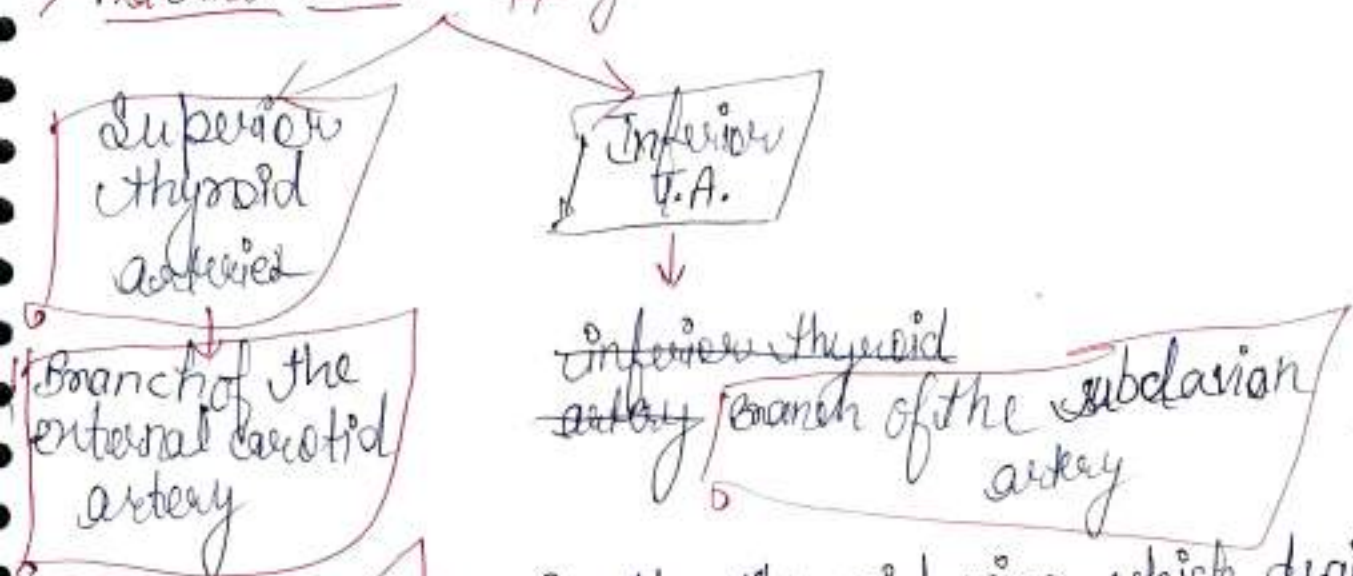 Superior
thyroid
arteries
Branch of the
external carotid
artery
Inferior
T.A.
inferior thyroid
artery Branch of the subclavian
artery
thyroid which